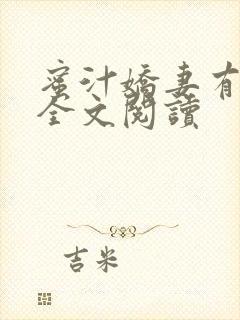 蜜汁嬌妻有
全文閱讀
吉米